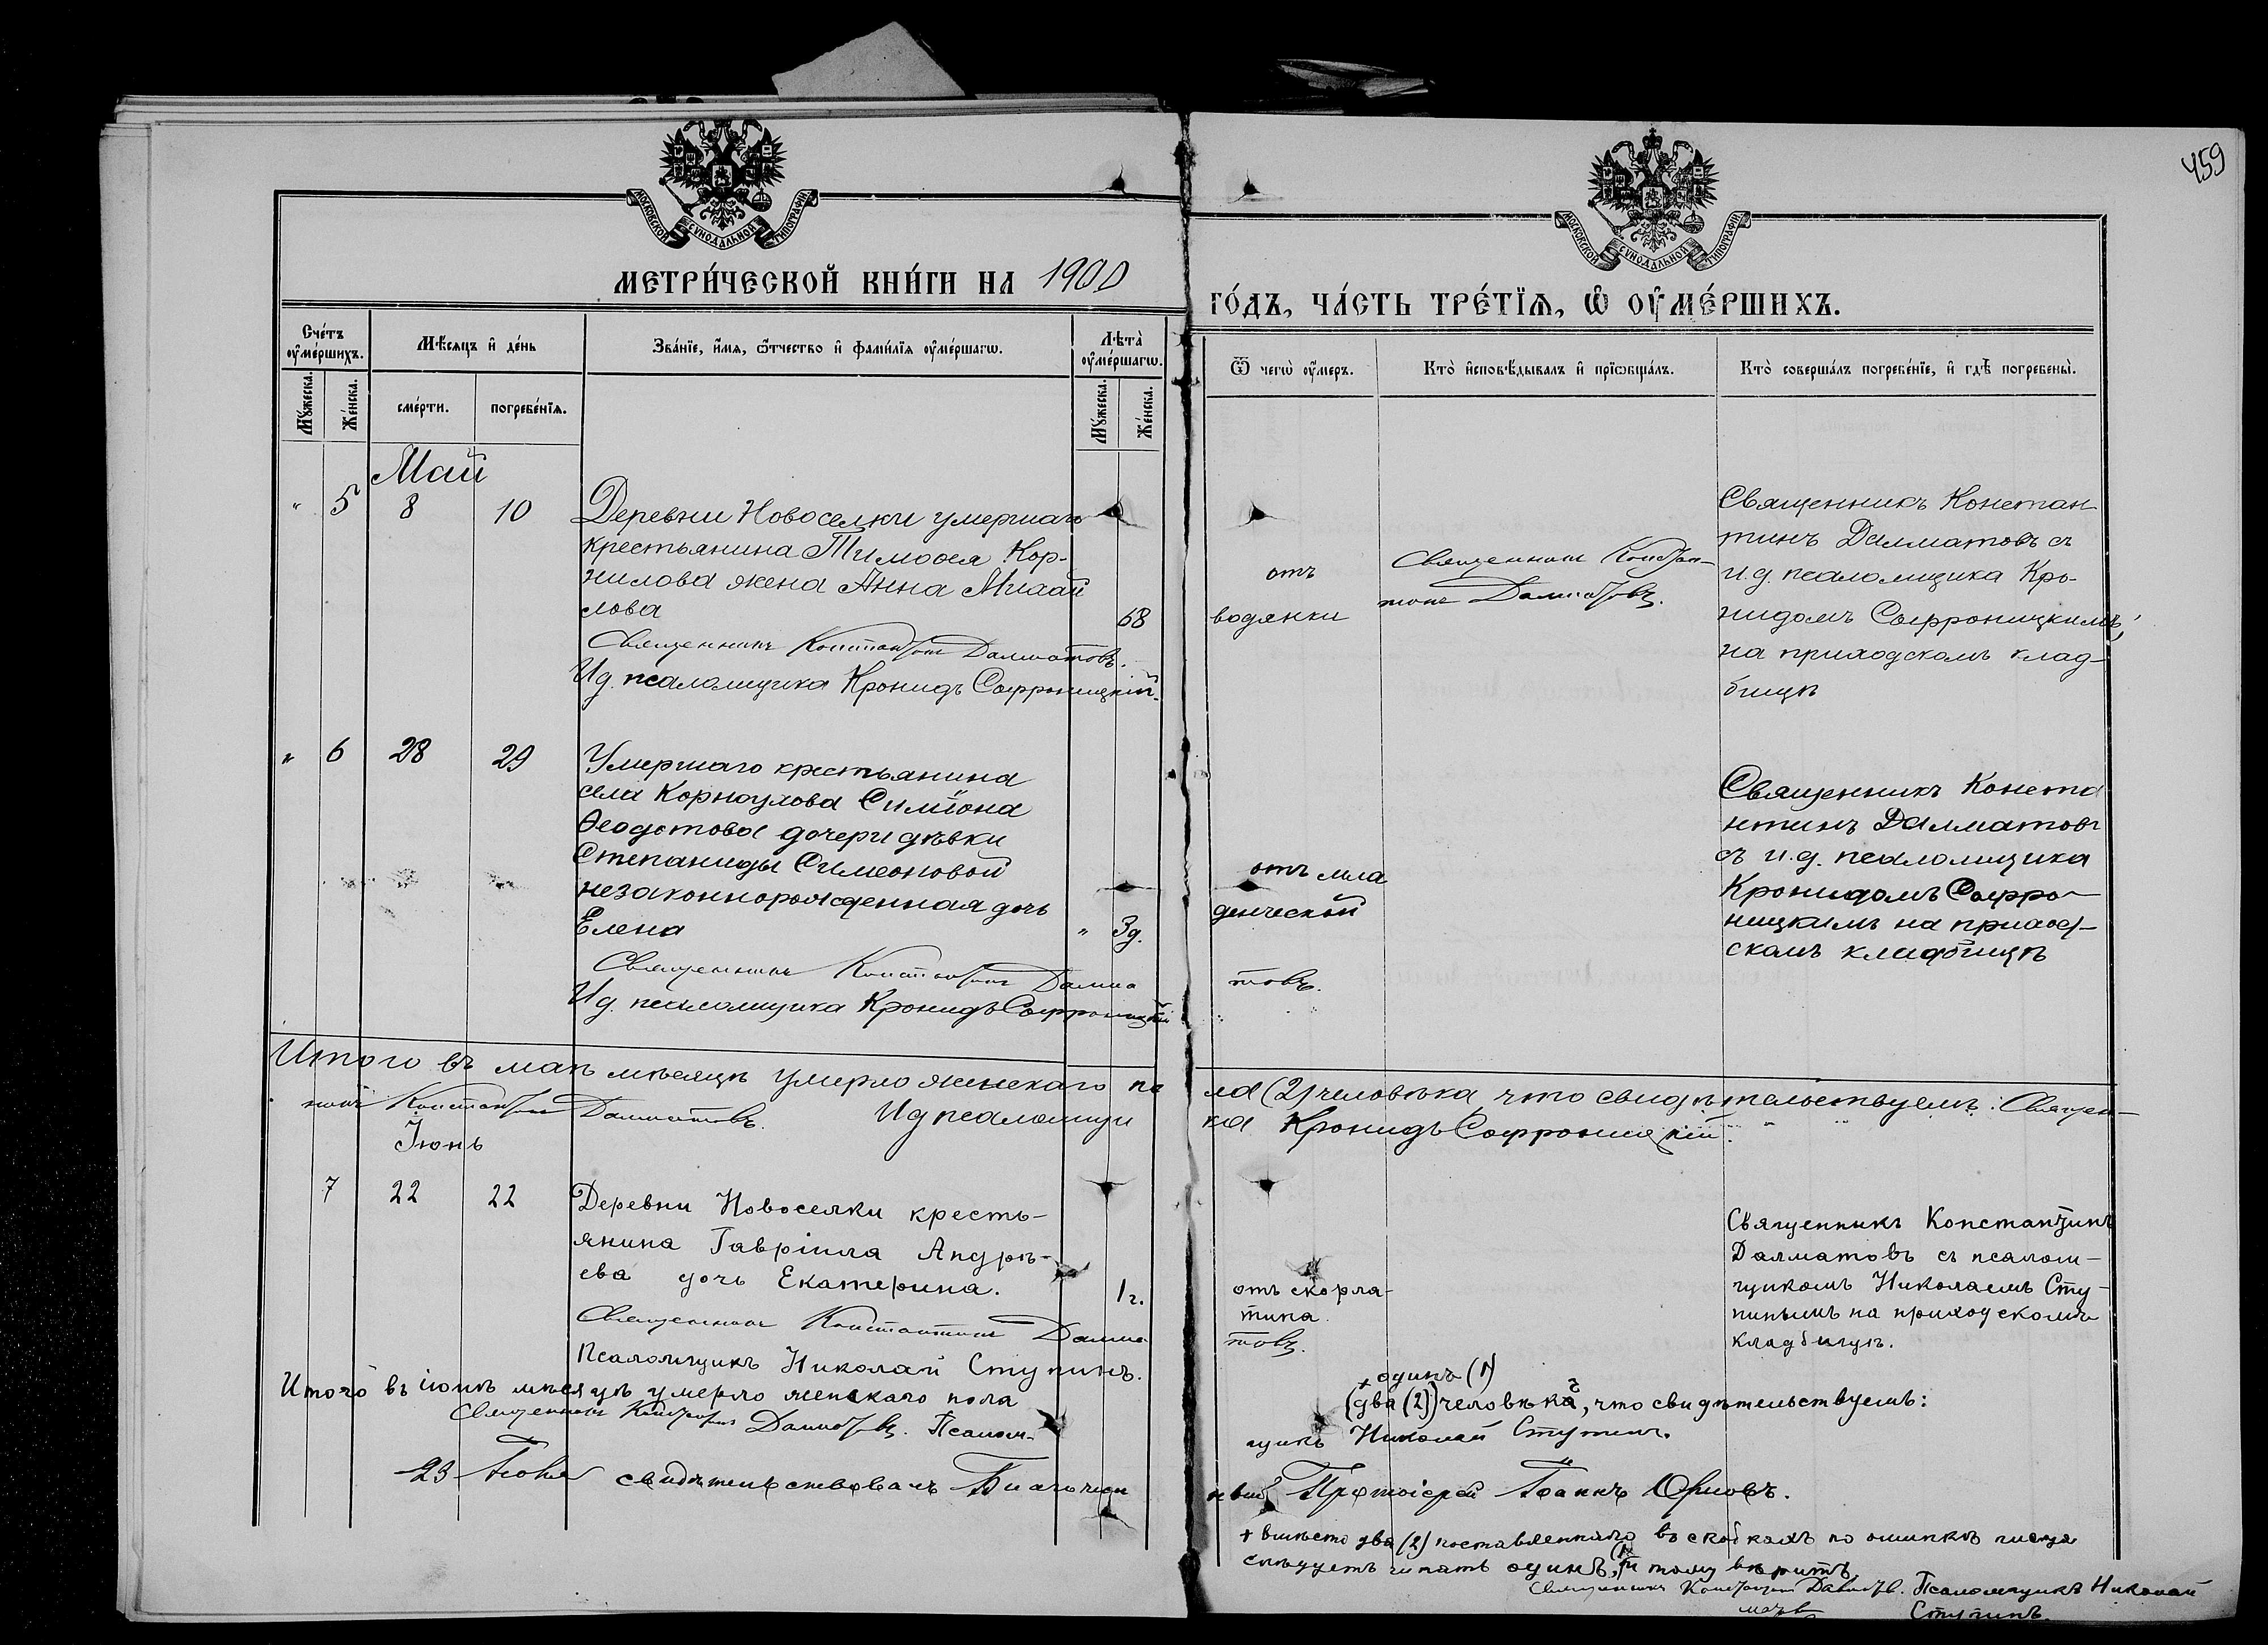 459
МОСКОВСКОЙ СѴНОДАЛЬНОЙ ТИПОГРАФІИ
МОСКОВСКОЙ СѴНОДАЛЬНОЙ ТИПОГРАФІИ
МЕТРИ́ЧЕСКОЙ КНИ́ГИ НА 1900
ГО́ДЪ, ЧА́СТЬ ТРЕ́ТІѦ, Ѡ҆ ОУ҆МЕ́РШИХЪ.
Сче́тъ оу҆ме́ршихъ.
Мѣ́сяцъ и҆ де́нь
Зва́нїе, и҆́мя, ѻ҆́тчество и҆ фами́лїя оу҆ме́ршагѡ.
Лѣ́та оу҆ме́ршагѡ.
Мꙋ́жеска.
Же́нска.
сме́рти.
погребе́нїѧ.
Мꙋ́жеска.
Же́нска.
Ѿ чегѡ̀ оу҆́меръ.
Кто̀ и҆сповѣ́дывалъ и҆ прїѡбща́лъ.
Кто̀ соверша́лъ погребе́нїе, и҆ гдѣ̀ погребены̀.
Май
" 5 8 10 Деревни Новоселки умершаго
крестьянина Тимоѳея Кор-
нилова жена Анна Михай
лова 68
Священникъ Константинъ Далматовъ.
И.д. псаломщика Кронидъ Софроницкій.
отъ
водянки
Священникъ Констан-
тинъ Далматовъ.
Священникъ Констан
тинъ Далматовъ съ
и.д. псаломщика Кро-
нидомъ Софроницкимъ,
на приходскомъ клад-
бищѣ
" 6 28 29 Умершаго крестьянина
села Корноухова Симіона
Ѳеодотова дочери дѣвки
Степаниды Симеоновой
незаконнорожденная дочь
Елена " 3д.
Священникъ Константинъ Далма
товъ.
И.д. псаломщика Кронидъ Софроницкій
отъ мла
денческой
Священникъ Конста
нтинъ Далматовъ
съ и.д. псаломщика
Кронидомъ Софро-
ницкимъ на приход-
скомъ кладбищѣ
Итого въ маѣ мѣсяцѣ умерло женскаго по
ла (2) человѣка что свидѣтельствуемъ: Священ-
никъ Константинъ Далматовъ. И.д псаломщи
ка Кронидъ Софроницкій.
Іюнь
7 22 22 Деревни Новоселки кресть-
янина Гавріила Андрѣ-
ева дочь Екатерина. 1 г.
Священникъ Константинъ Далма
товъ.
Псаломщикъ Николай Ступинъ.
отъ скорла-
тина
Священникъ Константинъ
Далматовъ съ псалом-
щикомъ Николаемъ Сту-
пинымъ на приходскомъ
кладбищѣ.
Итого въ іюнѣ мѣсяцѣ умерло женскаго пола
+ одинъ (1)
(два (2)) человѣка, что свидѣтельствуемъ:
Священникъ Константинъ Далматовъ. Псалом-
щикъ Николай Ступинъ.
23 Іюня свидѣтельствовалъ Благочин
ный Протоіерей Іоаннъ Орловъ.
+ вмѣсто два (2) поставленнаго въ скобкахъ по ошибкѣ писца
слѣдуетъ читать одинъ, (1) и тому вѣрить,
Священникъ Константинъ Далматовъ. Псаломщикъ Николай
Ступинъ.